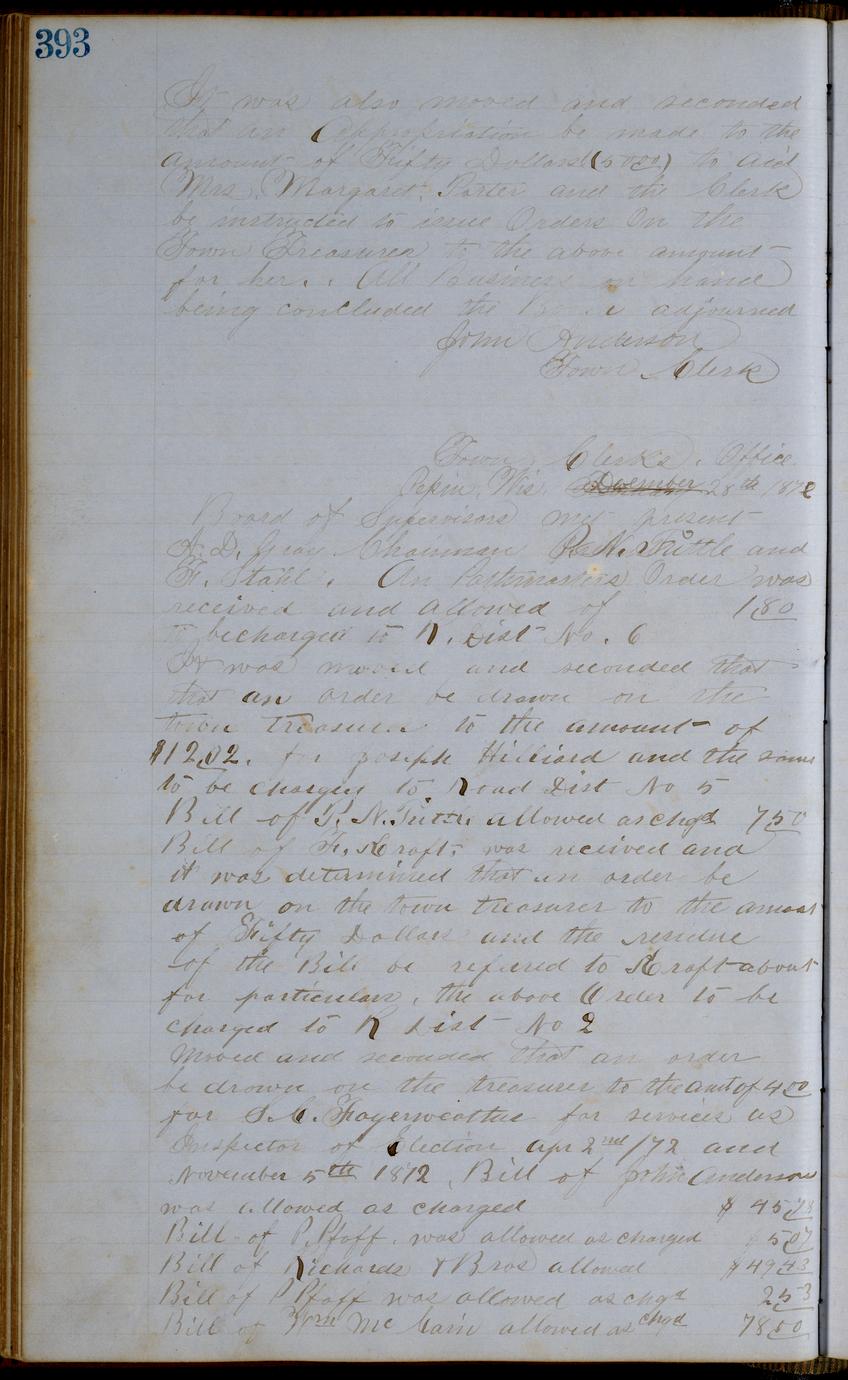 393
It was also moved and seconded
that an Appropriation be made to the
amount of Fifty Dollars (5000) to aid
Mrs. Margaret Porter and the Clerk
be instructed to issue Orders On the
Town Treasurer to the above amount
for her. All Business on hand
being concluded the Board adjourned
John Anderson
Town Clerk
Town Clerks Office
Pepin, Wis. December 28th 1872
Board of Supervisors met present
Gray Chairman P. N. Tuttle and
F. Stahl. An Pathmasters Order was
received and allowed of 1 80
to be charged to R. Dist No. 6
It was moved and seconded that
that an order be drawn on the
town treasurer to the amount of
$12.02. for Joseph Hilliard and the same
to be charged to Road Dist No 5
Bill of P. N. Tuttle allowed as chgd 7 50
Bill of F. Kraft, was received and
it was determined that an order be
drawn on the town treasurer to the
of Fifty Dollars and the residue
of the Bill be referred to Kraft about
for particulars, the above Order to be
charged to R Dist No 2
Moved and seconded that an order
be drawn on the treasurer to the amt of 4 00
for S. C. Fayerweather for services as
Inspector of Election apr 2nd/72 and
November 5th 1872, Bill of John Anderson
was allowed as charged $ 45
Bill of P. Pfaff. was allowed as charged $ 5 07
Bill of Richards & Bros allowed $ 49 43
Bill of P Pfaff was allowed as chgd 2 53
Bill of Wm Mc Cain allowed as chgd 78 50